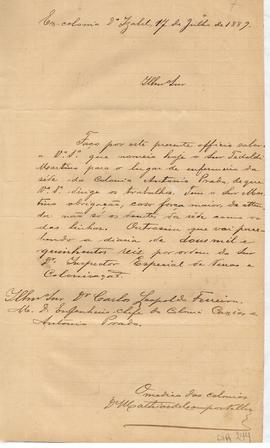 Ex-colonia Dª Izabel, 17 de Julho de 1887.
Illmo Snr
Faço por este presente officio saber
a V.ª S.ª que nomeio hoje o Snr Tadaldi
Martins para o lugar de enfermeiro da
séde da Colonia Antonio Prado, de que
V.ª S.ª dirige os trabalhos. Tem o Snr Mar
tins obrigação, caso força maior, de atten
der não só os doentes da séde como os
das linhas. Outrosim que vai perce
bendo a diaria de dous mil e
quinhentos reis por ordem do Snr
Dr. Inspector Especial de Terras e
Colonisação.
Illmo Snr Dr Carlos Leopoldo Ferreira
M. D. Engenheiro chefe da Colonia Caxias e
Antonio Prado.
O medico das colonias
Dr
DA 244